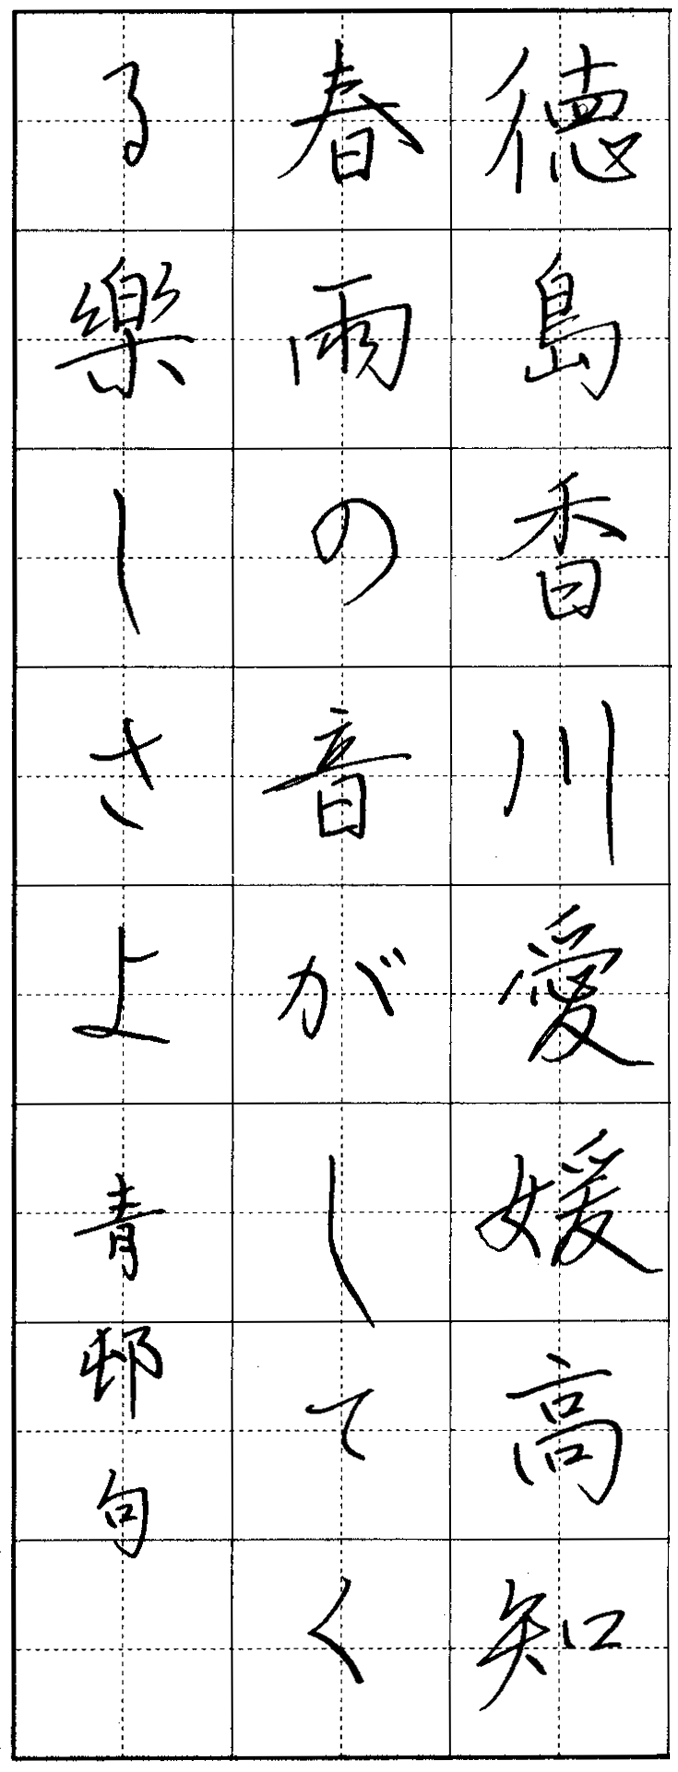 徳島香川愛媛高知
春雨の音がしてく
る樂しさよ青邨句